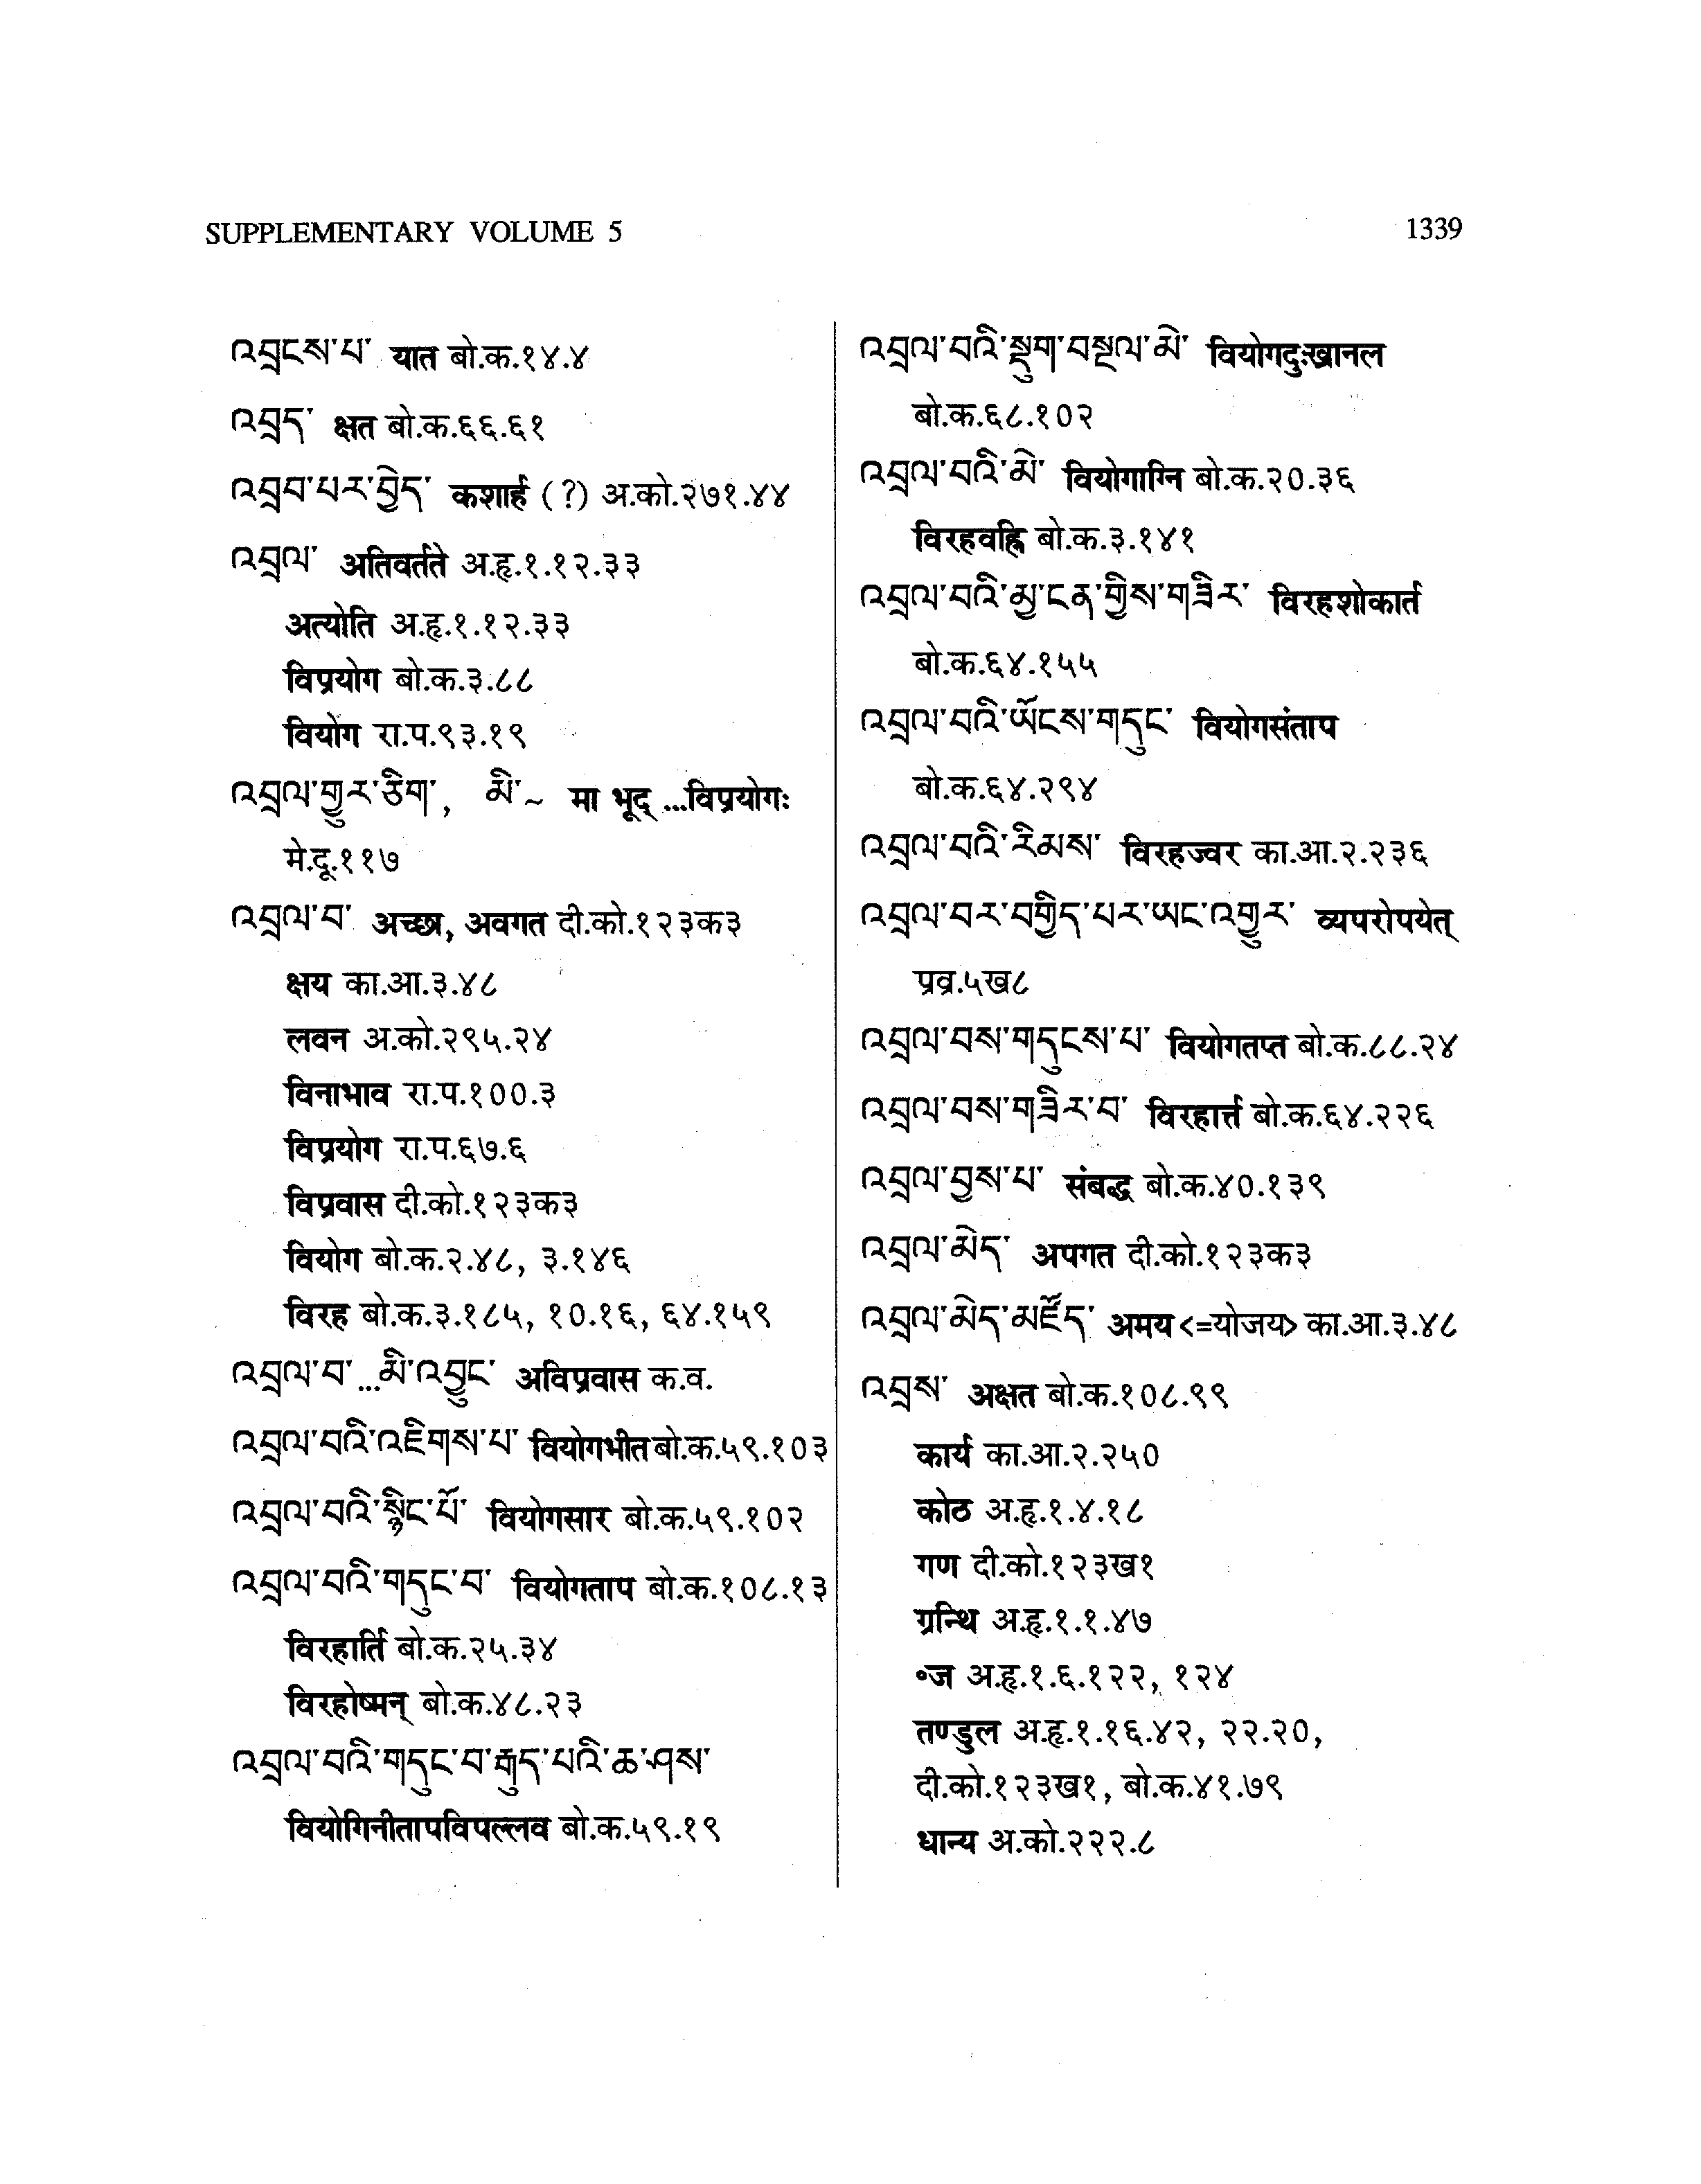 SUPPLEMENTARY VOLUME 5
1339
འབྲངས་པ་ यात बो.क.१४.४
འབྲད་ क्षत बो.क.६६.६१
འབྲབ་པར་བྱེད་ कशार्ह (?) अ.को.२७१.४४
འབྲལ་ अतिवर्तते अ.हृ.१.१२.३३
अत्योति अ.हृ.१.१२.३३
विप्रयोग बो.क.३.८८
वियोग रा.प.९३.१९
འབྲལ་གྱུར་ཅིག་, མི་~ मा भूद् ...विप्रयोगः
मे.दू.११७
འབྲལ་བ་ अच्छा, अवगत दी.को.१२३क३
क्षय का.आ.३.४८
लवन अ.को.२९५.२४
विनाभाव रा.प.१००.३
विप्रयोग रा.प.६७.६
विप्रवास दी.को.१२३क३
वियोग बो.क.२.४८, ३.१४६
विरह बो.क.३.१८५, १०.१६, ६४.१५९
འབྲལ་བ་...མི་འབྱུང་ अविप्रवास क.व.
འབྲལ་བའི་འཇིགས་པ་ वियोगभीत बो.क.५९.१०३
འབྲལ་བའི་སྙིང་པོ་ वियोगसार बो.क.५९.१०२
འབྲལ་བའི་གདུང་བ་ वियोगताप बो.क.१०८.१३
विरहार्ति बो.क.२५.३४
विरहोष्मन् बो.क.४८.२३
འབྲལ་བའི་གདུང་བ་རྒུད་པའི་ཆ་ཤས་
वियोगिनीतापविपल्लव बो.क.५९.१९
འབྲལ་བའི་སྡུག་བསྔལ་མེ་ वियोगदुःखानल
बो.क.६८.१०२
འབྲལ་བའི་མེ་ वियोगाग्नि बो.क.२०.३६
विरहवह्नि बो.क.३.१४१
འབྲལ་བའི་མྱ་ངན་གྱིས་གཟིར་ विरहशोकार्त
बो.क.६४.१५५
འབྲལ་བའི་ཡོངས་གདུང་ वियोगसंताप
बो.क.६४.२९४
འབྲལ་བའི་རིམས་ विरहज्वर का.आ.२.२३६
འབྲལ་བར་བགྱིད་པར་ཡང་འགྱུར་ व्यपरोपयेत्
प्रव्र.५ख८
འབྲལ་བས་གདུངས་པ་ वियोगतप्त बो.क.८८.२४
འབྲལ་བས་གཟིར་བ་ विरहार्त्त बो.क.६४.२२६
འབྲལ་བྱས་པ་ संबद्ध बो.क.४०.१३९
འབྲལ་མེད་ अपगत दी.को.१२३क३
འབྲལ་མེད་མཛོད་ अमय <=योजय> का.आ.३.४८
འབྲས་ अक्षत बो.क.१०८.९९
कार्य का.आ.२.२५०
कोठ अ.हृ.१.४.१८
गण दी.को.१२३ख१
ग्रन्थि अ.हृ.१.१.४७
॰ज अ.हृ.१.६.१२२, १२४
तण्डुल अ.हृ.१.१६.४२, २२.२०,
दी.को.१२३ख१, बो.क.४१.७९
धान्य अ.को.२२२.८